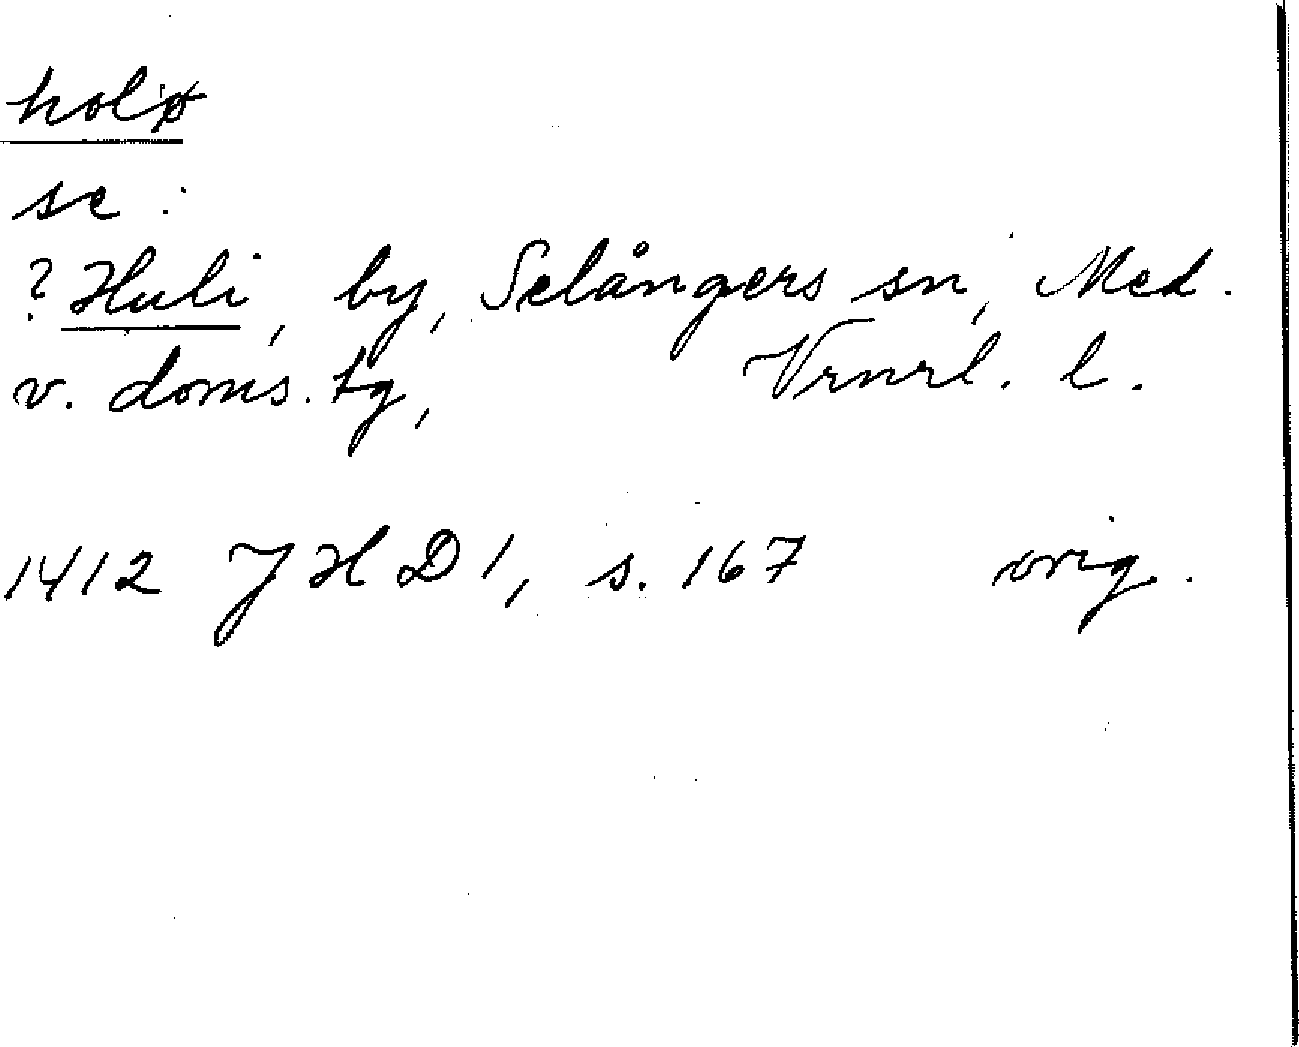 holø
se:
? Huli, by, Selångers sn, Med.
v. doms. tg, Vrnrl. l.
1412 JHD 1, s. 167 orig.